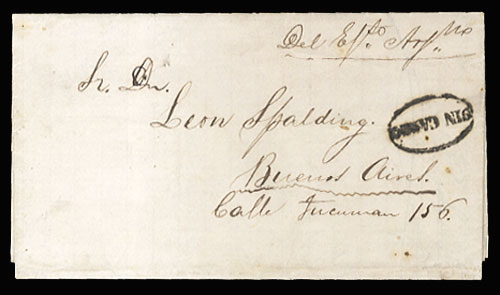 Del Ejto. Arjno
Sr. Dn.
Leon Spalding.
SIN CARGO
Buenos Aires.
Calle Tucuman 156.